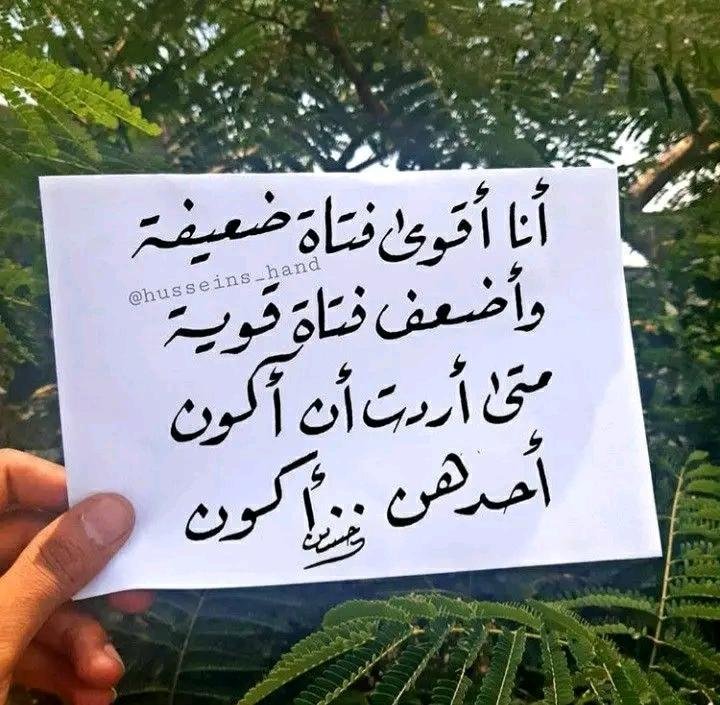 أنا أقوى فتاة ضعيفة
@husseins_hand
وأضعف فتاة قوية
متى أردت أن أكون
أحدهن .. أكون